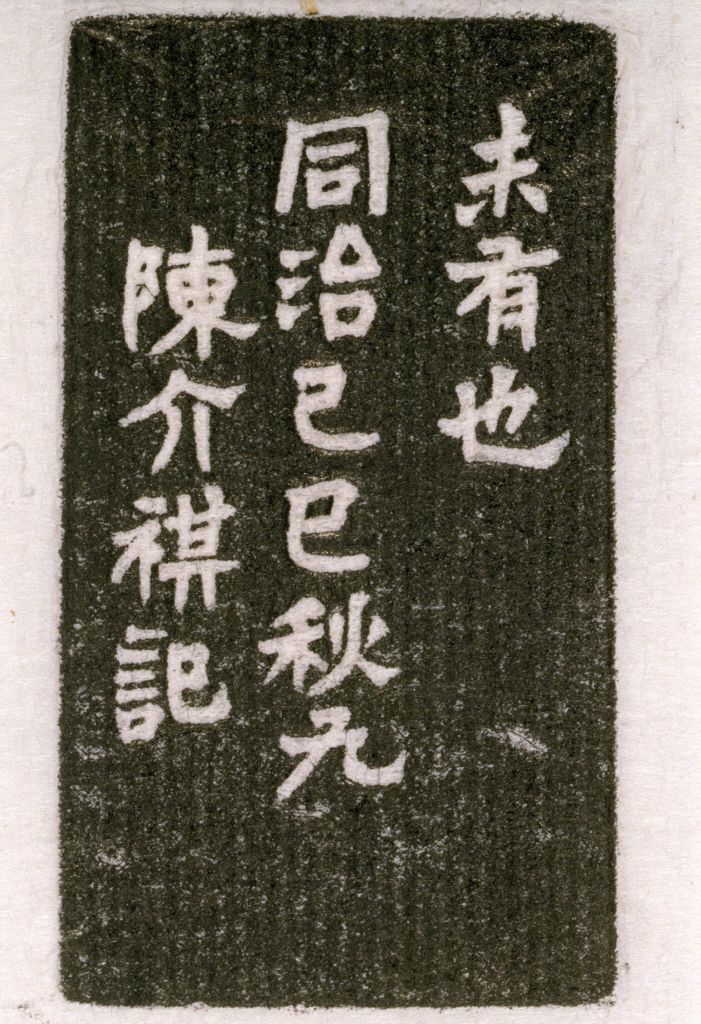 未有也
同治己巳秋九
陳介祺記